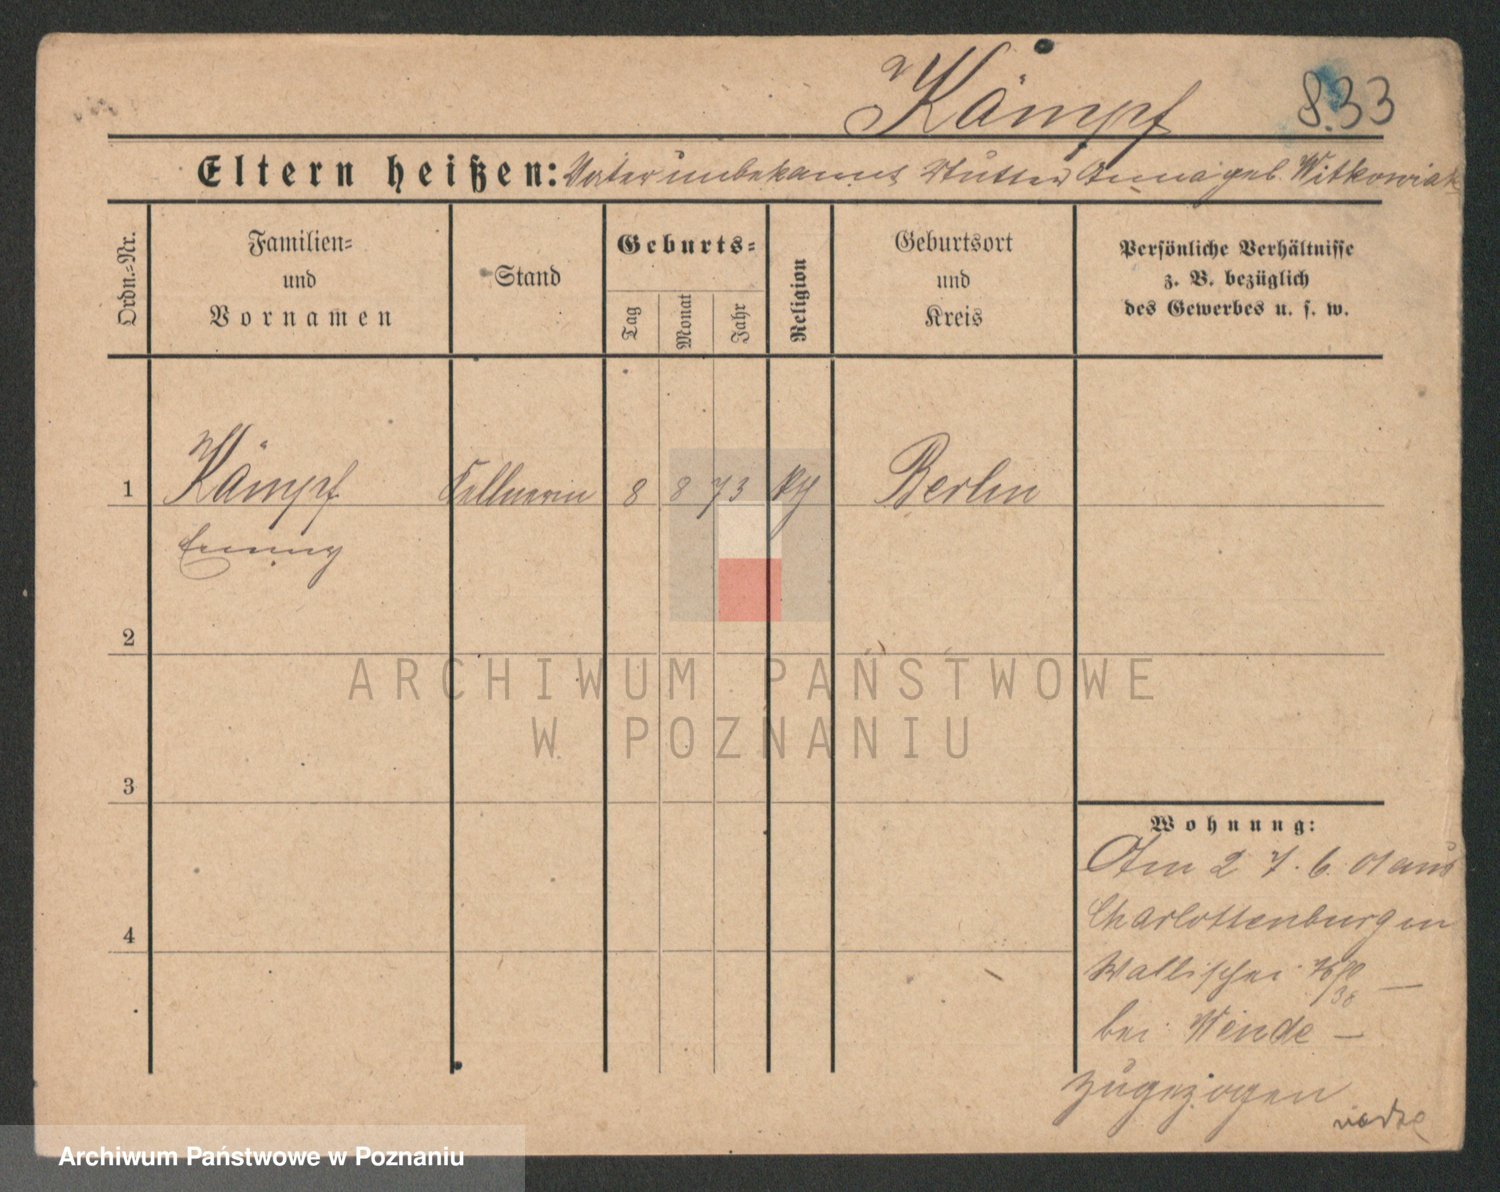 Kämpf 833
Eltern heißen: Vater unbekannt Mutter Anna geb. Witkowiak
Ordn.=Nr.
Familien=
und
Vornamen
Stand
Geburts=
Tag
Monat
Jahr
Religion
Geburtsort
und
Kreis
Persönliche Verhältnisse
z. B. bezüglich
des Gewerbes u. s. w.
1 Kämpf Kellnerin 8 8 73 Berlin
2
3
4
Wohnung:
Am 27. 6. 01 aus
Charlottenburg in
Wallischei
bei Wende —
zugezogen
ARCHIWUM PAŃSTWOWE
W POZNANIU
Archiwum Państwowe w Poznaniu